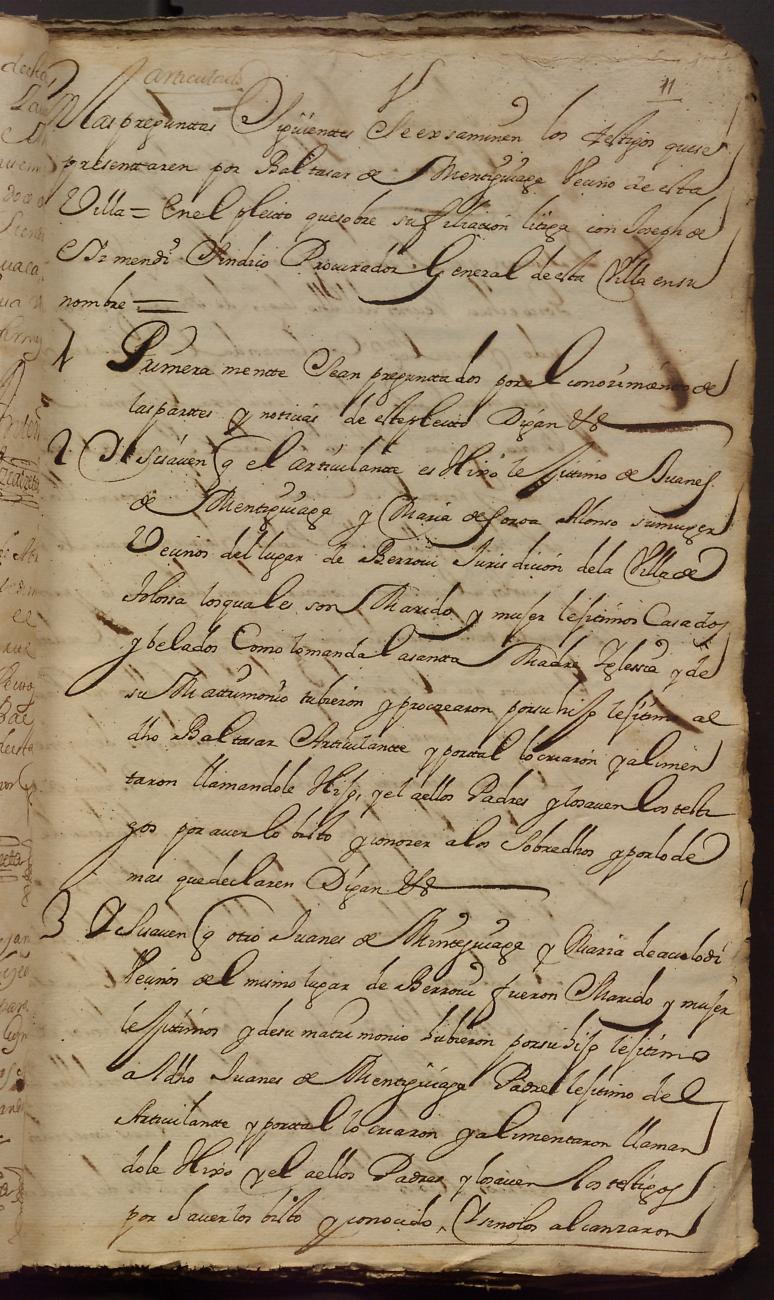 articulado
11
Por las preguntas Siguientes Se examinen los testigos que se
presenttaren por Baltasar de Mentiguiaga Vecino de esta
Villa = En el pleito que sobre su filiacion litiga con Joseph de
Sindico Procurador General de esta Villa en su
nombre =
1 Primera mente Sean preguntados por el conocimiento de
las partes y noticias de este pleito Digan &a
2 Si Saven q el articulante es Hixo lexitimo de Juanes
de Mentiguiaga y Maria de Soroa Alonso su muger
Vecinos del lugar de Berrovi Jurisdicion de la Villa de
Tolossa los quales son Marido y mujer lesitimos Casados
y belados Como lo manda la santta Madre Iglessia y de
su Matrimonio tubieron y procrearon por su hijo lesitimo al
dho Baltasar Articulante y por tal lo criaron y alimen
taron llamandole Hijo, y el a ellos Padres y lo saven los testi
gos por aver lo bisto y conozer a los Sobredhos y por lo de
mas que declaren Digan &a
3 Si Saven q otro Juanes de Mentiguiaga y Maria de
Vecinos del mismo lugar de Berrovi fueron Marido y mujer
lesitimos y de su matrimonio hubieron por su hijo lesitimo
al dho Juanes de Mentiguiaga Padre lesitimo del
Articulante y por tal lo criaron y alimentaron llaman
dole Hixo y el a ellos Padres y lo saven los testigos
por haverlos bisto y conocido, Y si no los alcanzaron